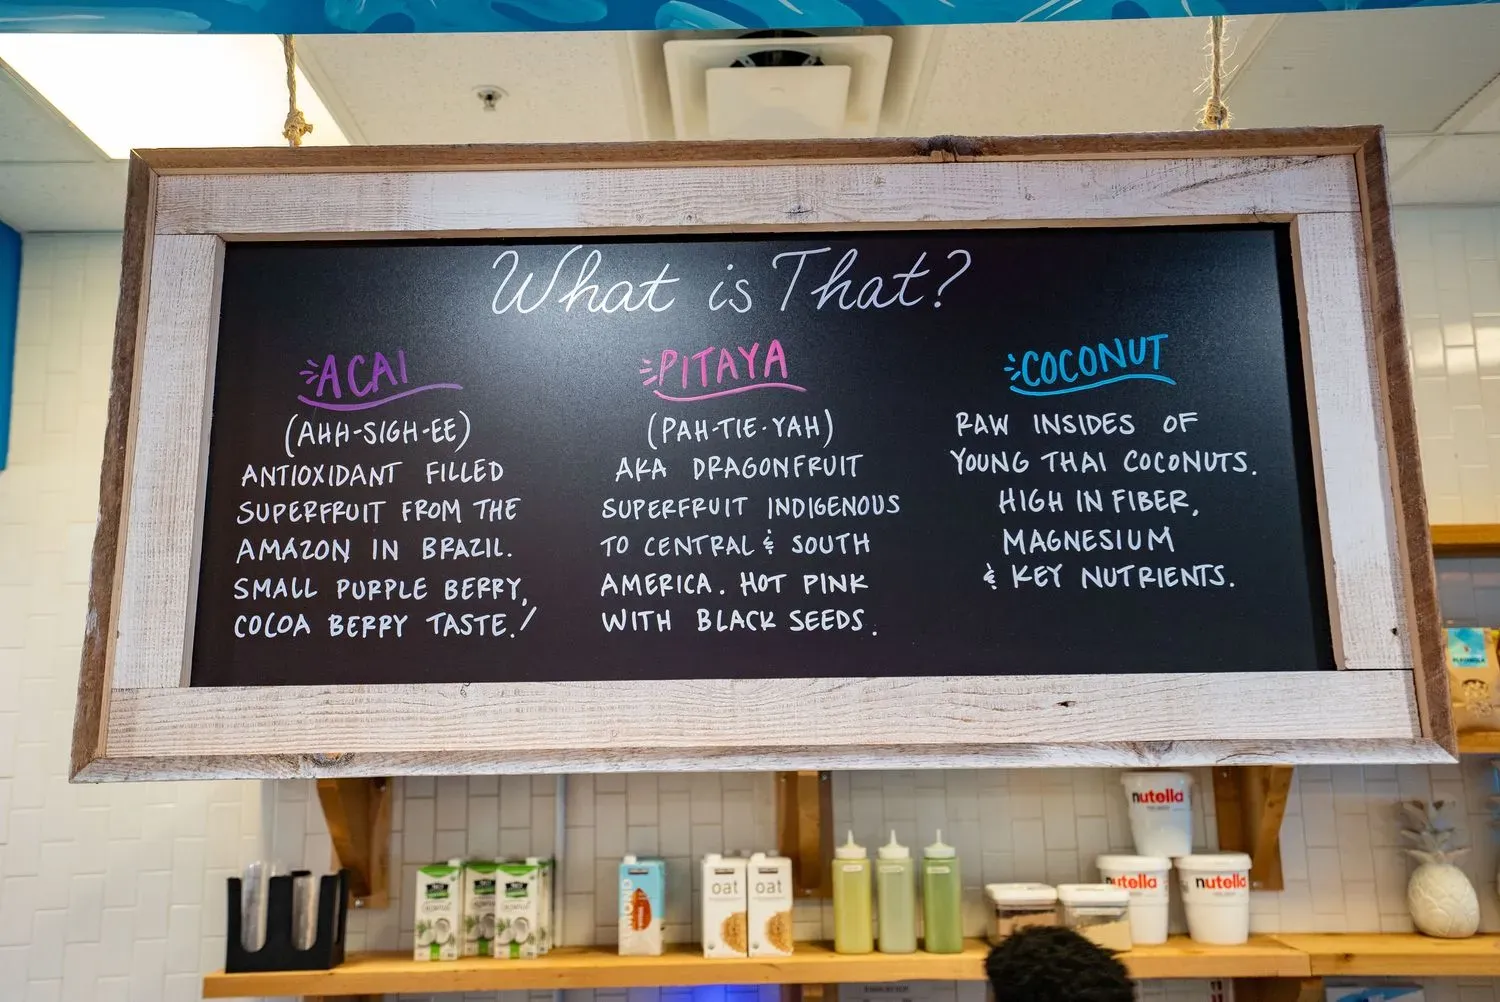 What is That?
ACAI
(AHH-SIGH-EE)
ANTIOXIDANT FILLED
SUPERFRUIT FROM THE
AMAZON IN BRAZIL.
SMALL PURPLE BERRY,
COCOA BERRY TASTE!
PITAYA
(PAH-TIE-YAH)
AKA DRAGONFRUIT
SUPERFRUIT INDIGENOUS
TO CENTRAL & SOUTH
AMERICA. HOT PINK
WITH BLACK SEEDS.
COCONUT
RAW INSIDES OF
YOUNG THAI COCONUTS.
HIGH IN FIBER,
MAGNESIUM
& KEY NUTRIENTS.
nutella
oat
oat
nutella
nutella